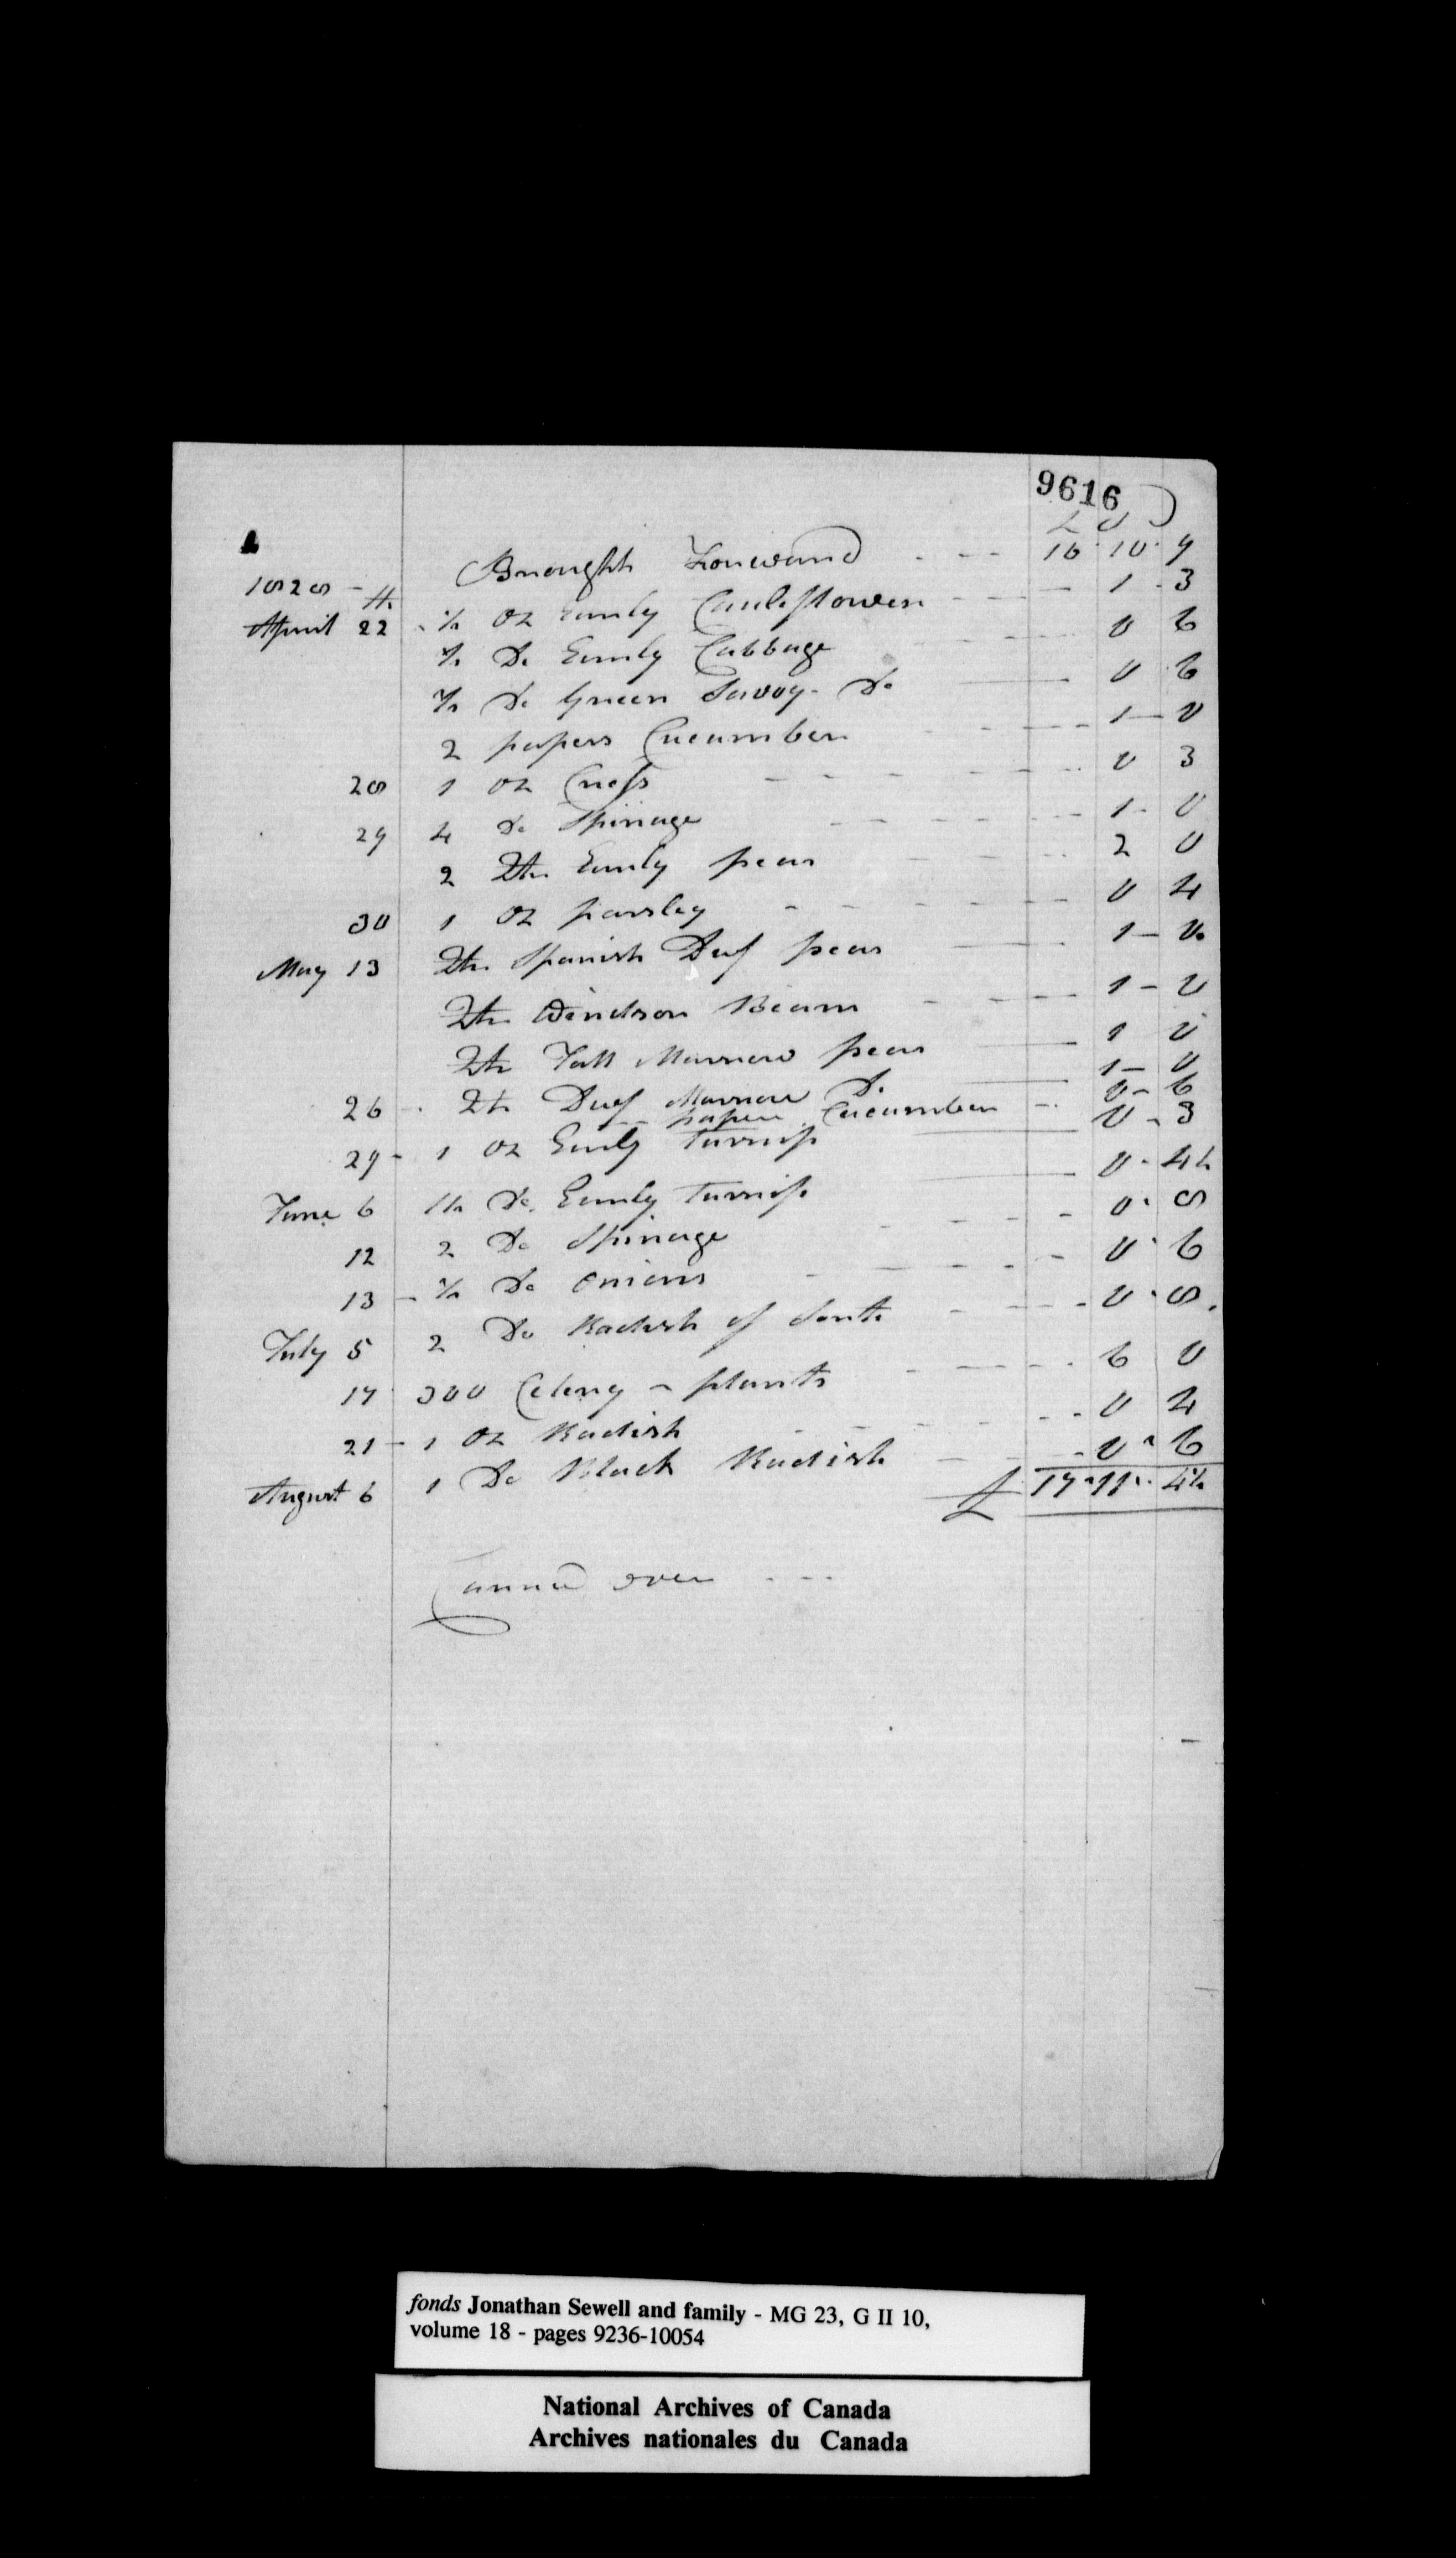 9616
£ S D
Brought Forward 16 10 9
1828
April 22 ½ oz Early Cauleflower 1 3
½ Do Early Cabbage 0 6
½ Do Green Savoy Do 0 6
2 papers Cucumber 1 0
28 1 oz Cress 0 3
29 4 Do Spinage 1 0
2 Qts Early peas 2 0
30 1 oz parsley 0 4
May 13 Qt Spanish Duf peas 1 0
Qt Windsor Beans 1 0
Qt Tall Marrow peas 1 0
Qt Duf Marrow Do 1 0
26 paper Cucumber 0 6
29 1 oz Early Turnip 0 3
June 6 1½ Do Early Turnip 0 4½
12 2 Do Spinage 0 8
13 ½ Do Onions 0 6
July 5 2 Do Radish of Sorts 0 8
17 300 Celery plants 6 0
21 1 oz Radish 0 4
August 6 1 Do Black Radish 0 6
£ 17 11 4½
Carried over
fonds Jonathan Sewell and family - MG 23, G II 10,
volume 18 - pages 9236-10054
National Archives of Canada
Archives nationales du Canada